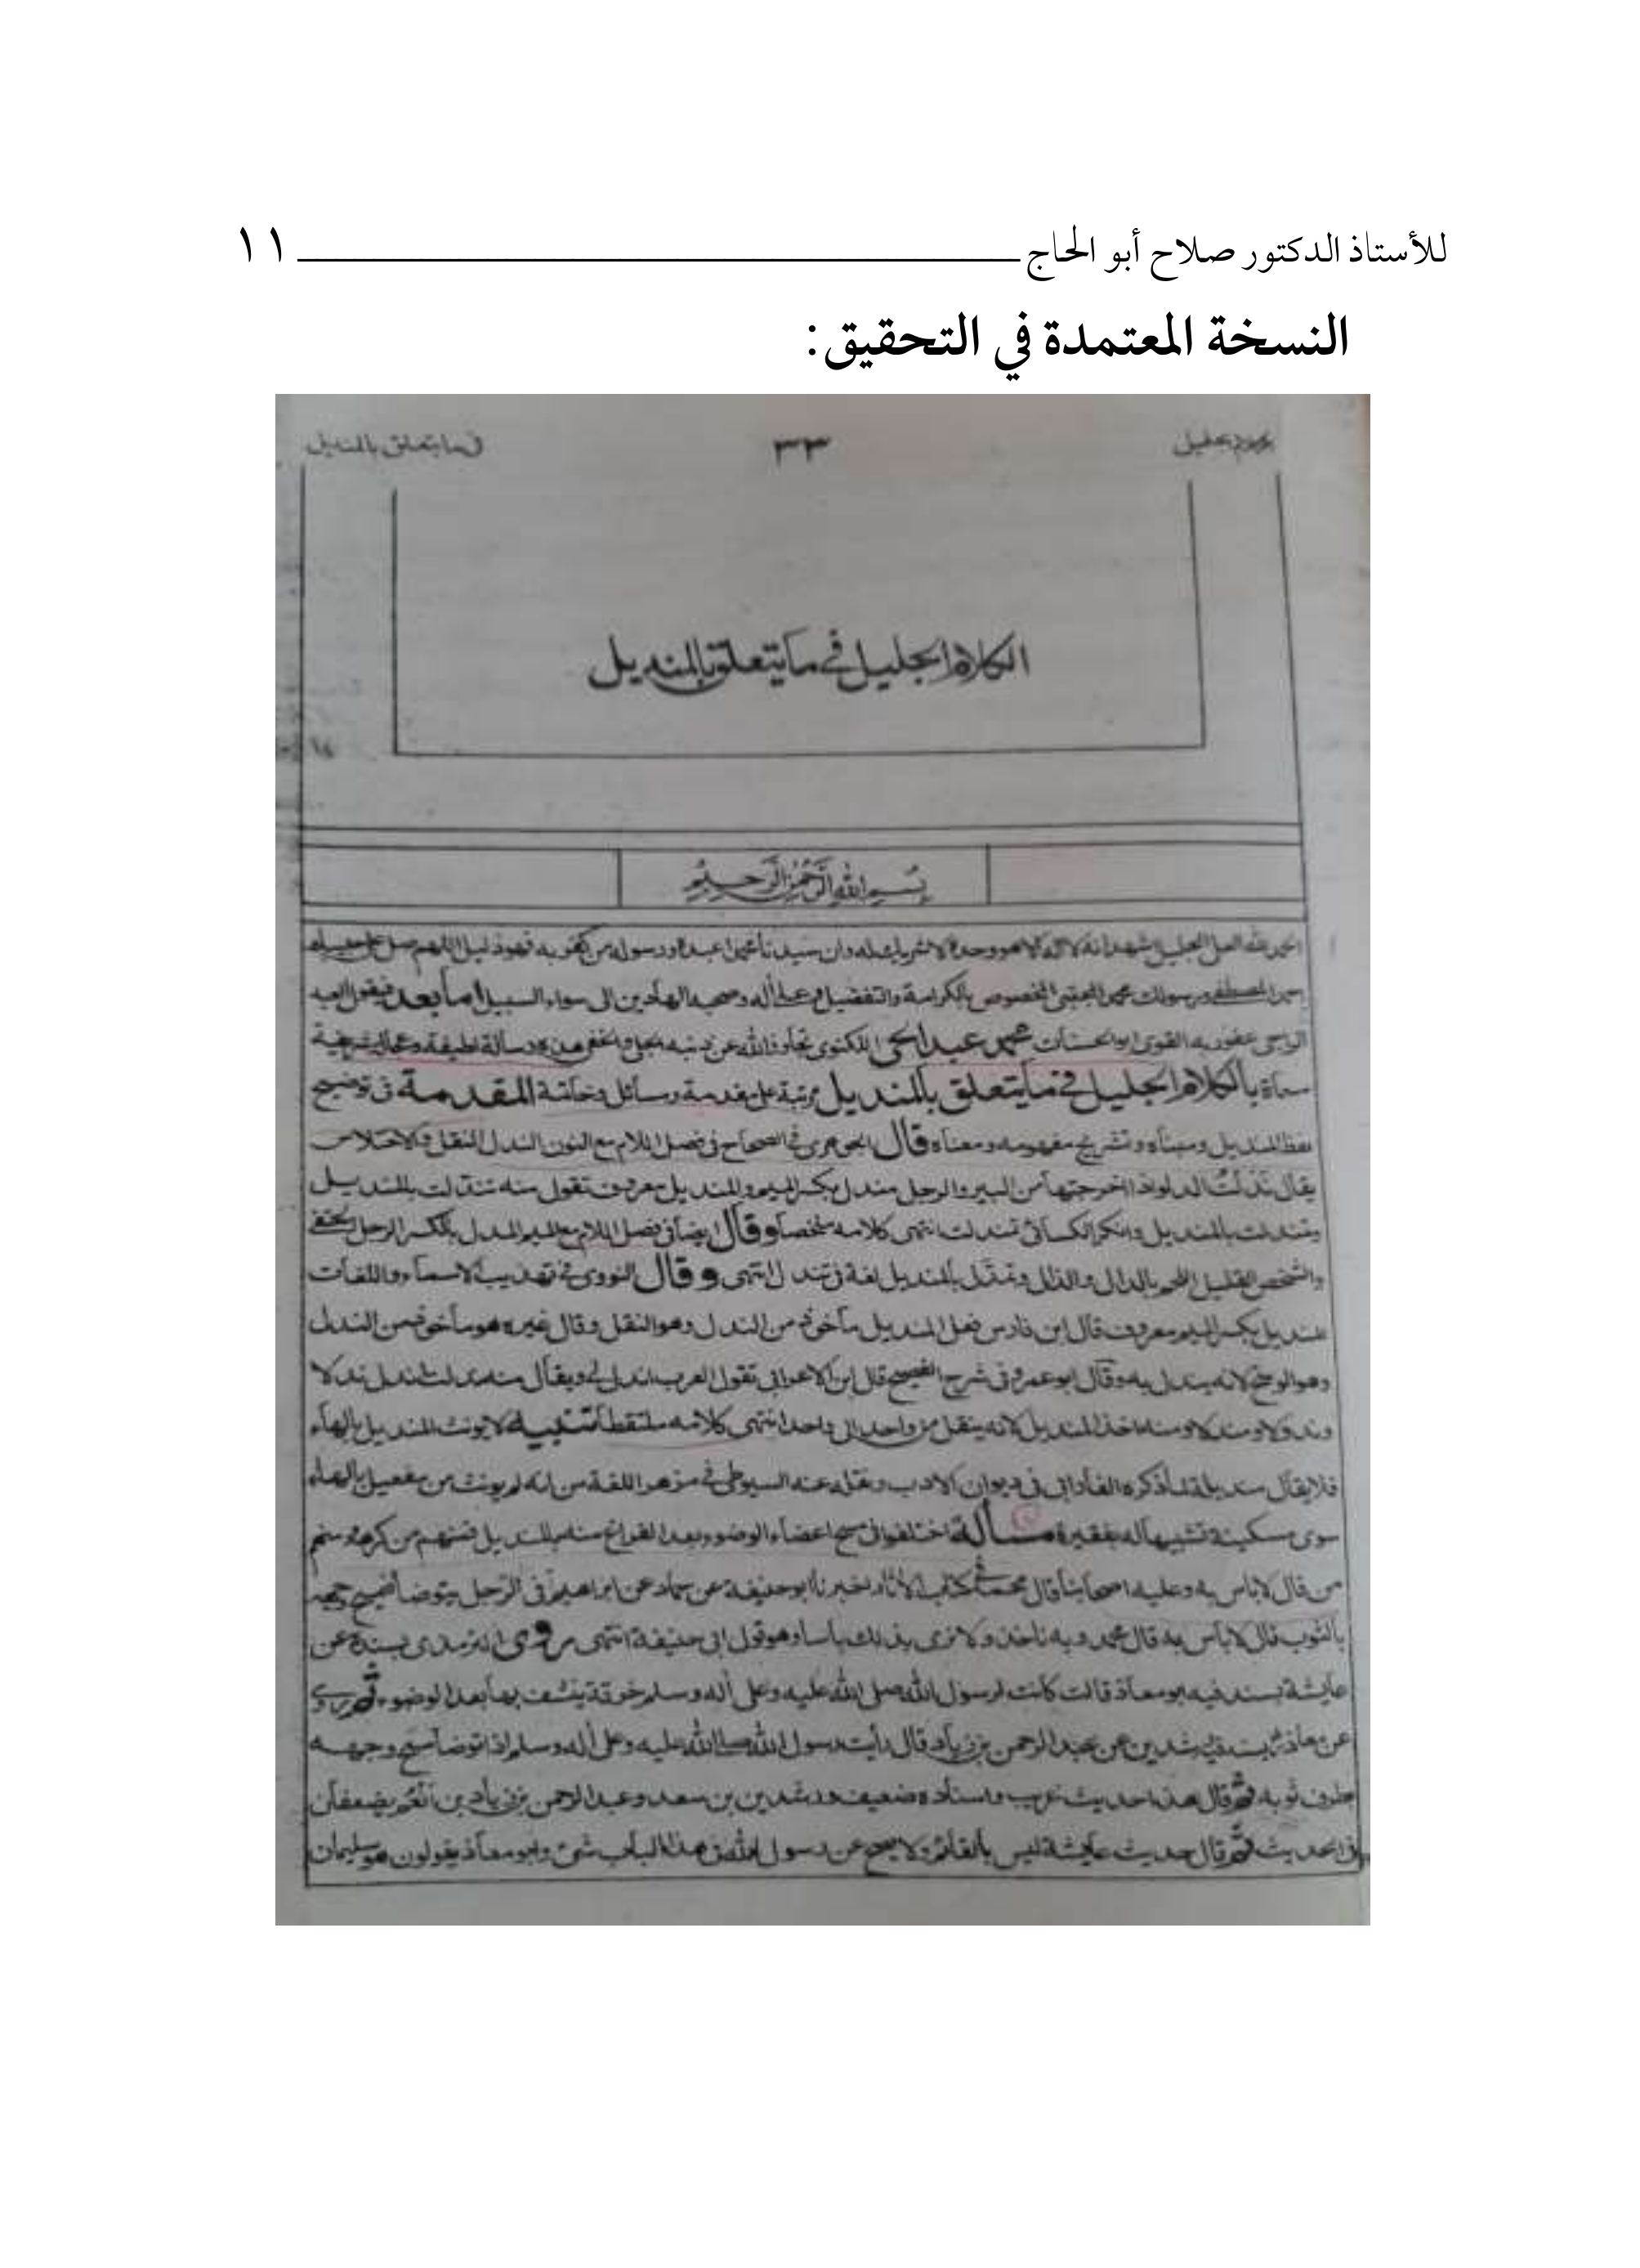 للأستاذ الدكتور صلاح أبو الحاج ١١
النسخة المعتمدة في التحقيق:
الكلام الجليل ٣٣ فيما يتعلق بالمنديل
الكلام الجليل في ما يتعلق بالمنديل
بسم الله الرحمن الرحيم
الحمد لله العلي الجليل اشهد انه لا اله الا هو وحده لا شريك له وان سيدنا محمدا عبده ورسوله من كفر به فهو ذليل اللهم صل على حبيبك
المصطفى ورسولك محمد المجتبى المخصوص بالكرامة والتفضيل وعلى أله وصحبه الهادين الى سواء السبيل اما بعد فيقول العبد
الراجى عفو ربه القوى ابو الحسنات محمد عبد الحى اللكنوى تجاوز الله عن ذنبه الجلى والخفى هذه رسالة لطيفة وعجالة شريفة
مسماة بالكلام الجليل في ما يتعلق بالمنديل مرتبة على مقدمة ومسائل وخاتمة المقدمة في توضيح
لفظ المنديل ومبناه وتشريح مفهومه ومعناه قال الجوهرى في الصحاح في فصل اللام مع النون الندل النقل والاختلاس
يقال ندلت الدلو اذا اخرجتها من البير والرجل مندل بكسر الميم والمنديل معروف تقول منه تندلت بالمنديل
وتمندلت بالمنديل وانكر الكسائى تمندلت انتهى كلامه ملخصا وقال ايضا في فصل اللام مع الميم المدل بالكسر الرجل الخفى
والشخص القليل اللحم بالدال والذال وتمدل بالمنديل لغة في تندل انتهى وقال النووى في تهذيب الاسماء واللغات
المنديل بكسر الميم معروف قال ابن فارس لعل المنديل مأخوذ من الندل وهو النقل وقال غيره هو مأخوذ من الندل
وهو الوسخ لانه يندل به وقال ابو عمرو في شرح الفصيح قال ابن الاعرابى تقول العرب اندل لى ويقال منه ندلت اندل ندلا
وندولا ومندلا ومنه اخذ المنديل لانه ينقل من واحد الى واحد انتهى كلامه ملتقطا تنبيه لا يونث المنديل بالهاء
فلا يقال منديلة لما ذكره الفارابى في ديوان الادب ونقله عنه السيوطى في مزهر اللغة من انه لم يونث من مفعيل بالهاء
سوى مسكينة تشبيها له بفقيرة مسألة اختلفوا فى مسح اعضاء الوضوء بعد الفراغ منه بالمنديل فمنهم من كرهه ومنهم
من قال لا باس به وعليه اصحابنا قال محمد في كتاب الاثار اخبرنا ابو حنيفة عن حماد عن ابراهيم في الرجل يتوضأ فيمسح وجهه
بالثوب قال لا باس به قال محمد وبه ناخذ ولا نرى بذلك باسا وهو قول ابى حنيفة انتهى وروى الترمذى بسنده عن
عايشة بسند فيه ابو معاذ قالت كانت لرسول الله صلى الله عليه وعلى أله وسلم خرقة ينشف بها بعد الوضوء ثم روى
عن معاذ بسند فيه رشدين عن عبد الرحمن بن زياد قال رأيت رسول الله صلى الله عليه وعلى أله وسلم اذا توضا مسح وجهه
بطرف ثوبه ثم قال هذا حديث غريب واسناده ضعيف ورشدين بن سعد وعبد الرحمن بن زياد بن أنعم يضعفان
في الحديث ثم قال حديث عايشة ليس بالقائم ولا يصح عن رسول الله في هذا الباب شئ وابو معاذ يقولون هو سليمان